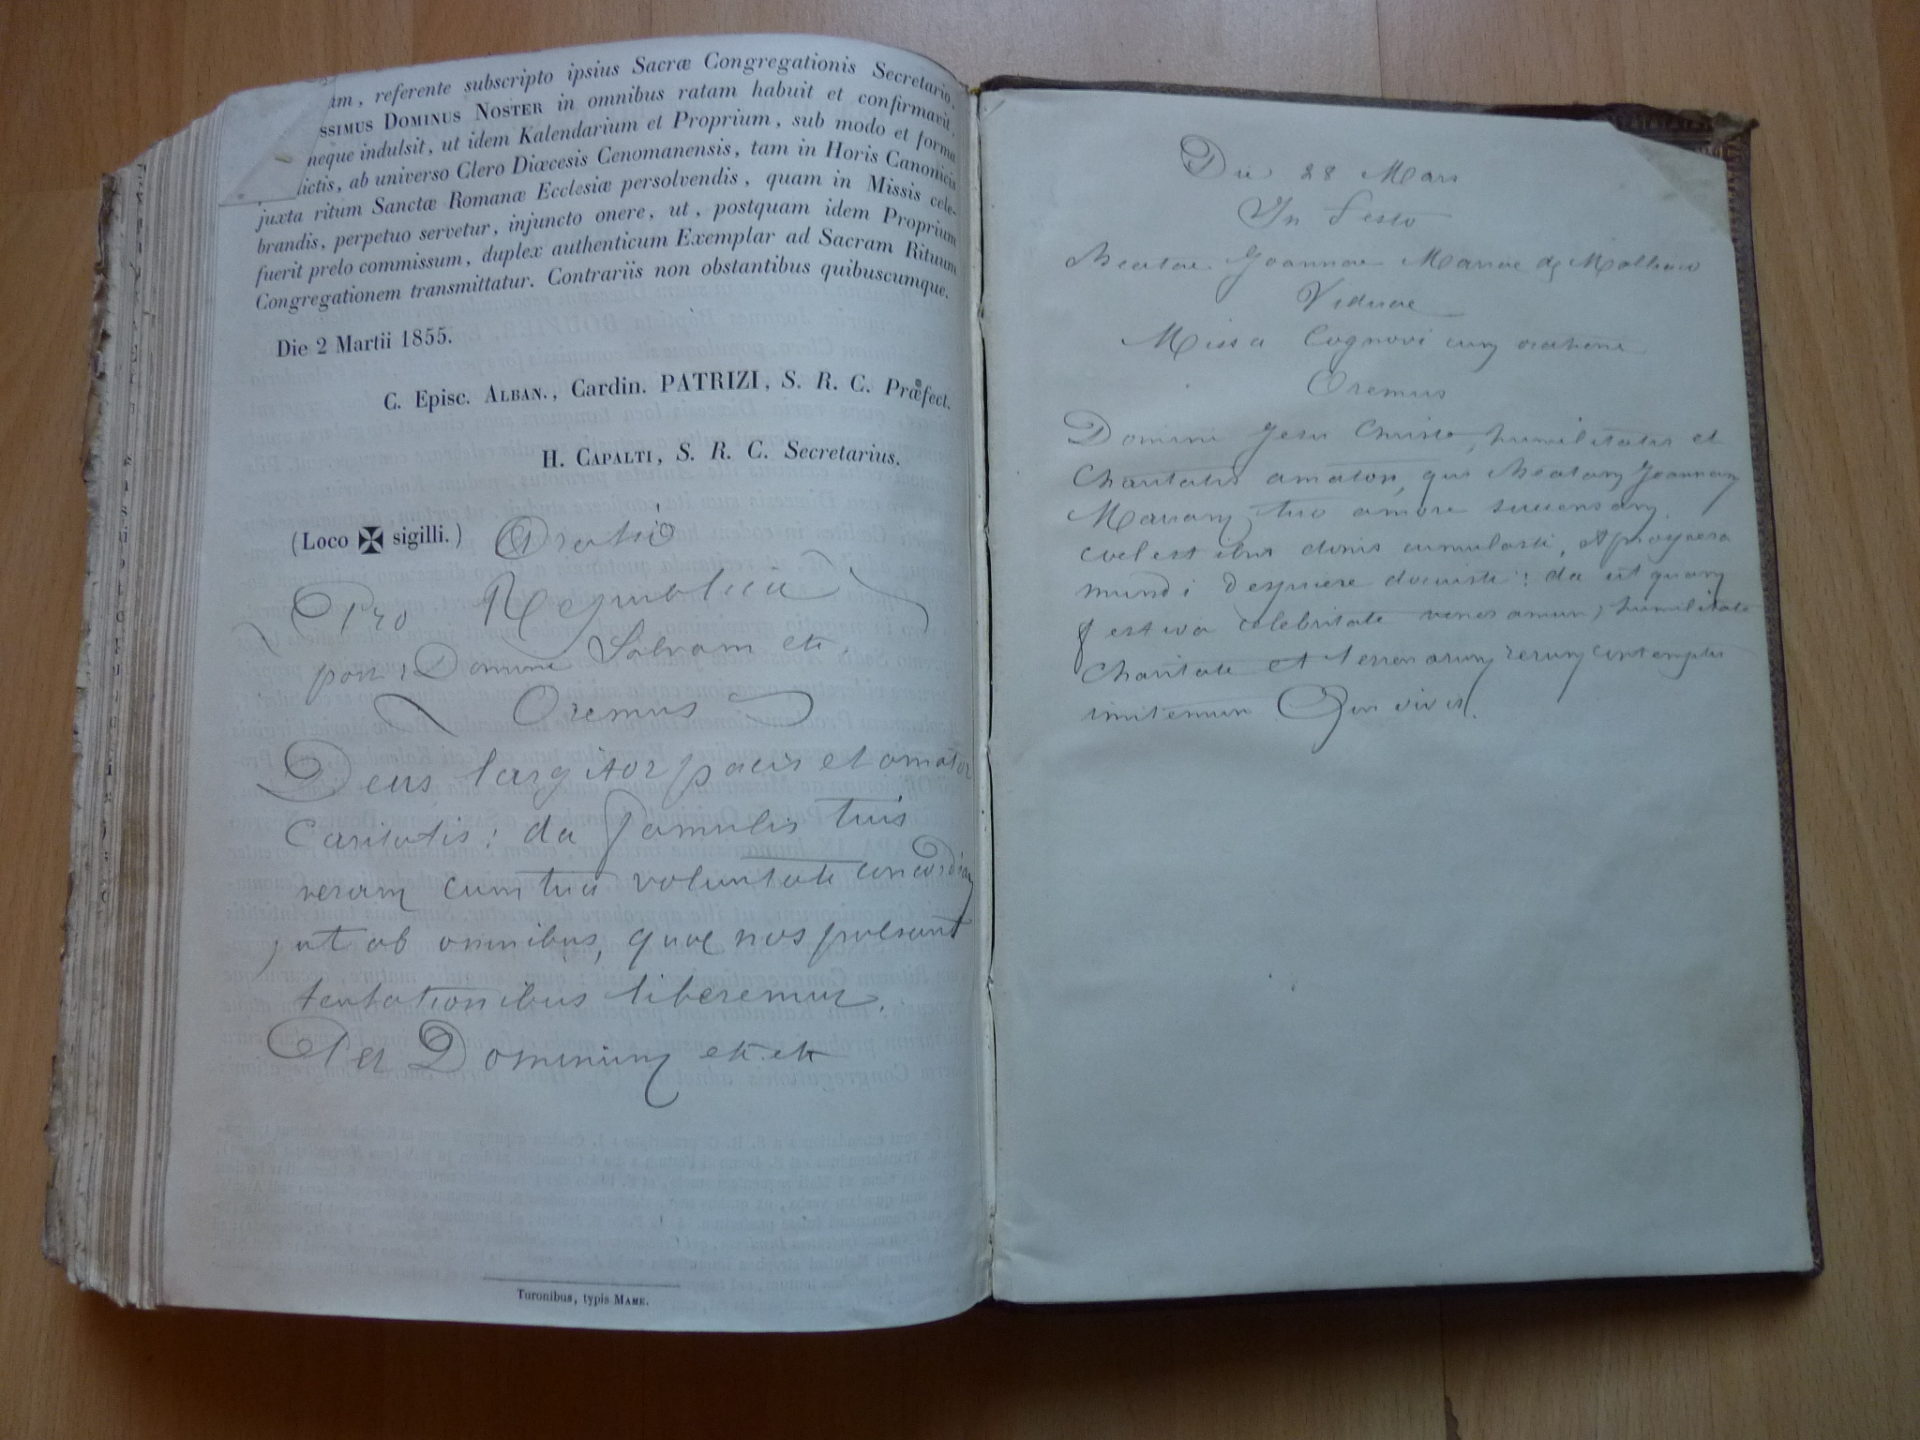 am, referente subscripto ipsius Sacræ Congregationis Secretario,
SSIMUS DOMINUS NOSTER in omnibus ratam habuit et confirmavit,
neque indulsit, ut idem Kalendarium et Proprium, sub modo et forma
ictis, ab universo Clero Diœcesis Cenomanensis, tam in Horis Canonicis
juxta ritum Sanctæ Romanæ Ecclesiæ persolvendis, quam in Missis cele-
brandis, perpetuo servetur, injuncto onere, ut, postquam idem Proprium
fuerit prelo commissum, duplex authenticum Exemplar ad Sacram Rituum
Congregationem transmittatur. Contrariis non obstantibus quibuscumque.
Die 2 Martii 1855.
C. Episc. ALBAN., Cardin. PATRIZI, S. R. C. Præfect.
H. CAPALTI, S. R. C. Secretarius.
(Loco ✠ sigilli.) Oratio
Pro Republica
post, Domine Salvam etc.
Oremus
Deus largitor pacis et amator
Caritatis: da famulis tuis
veram cum tua voluntate concordiam
, ut ab omnibus, quae nos pulsant
tentationibus liberemur.
Per Dominum etc. etc
Turonibus, typis MAME.
Die 28 Mars
In Festo
Beatae Joannae Mariae de Mailliaco
Viduae
Missa Cognovi cum oratione
Oremus
Domine Jesu Christe, humilitatis et
Charitatis amator, qui Beatam Joannam
Mariam tuo amore succensam
coelestibus donis cumulasti,
mundi despicere docuisti: da ut quam
festiva celebritate veneramur, humilitate
Charitate et terrenarum rerum contemptu
imitemur Qui vivis.